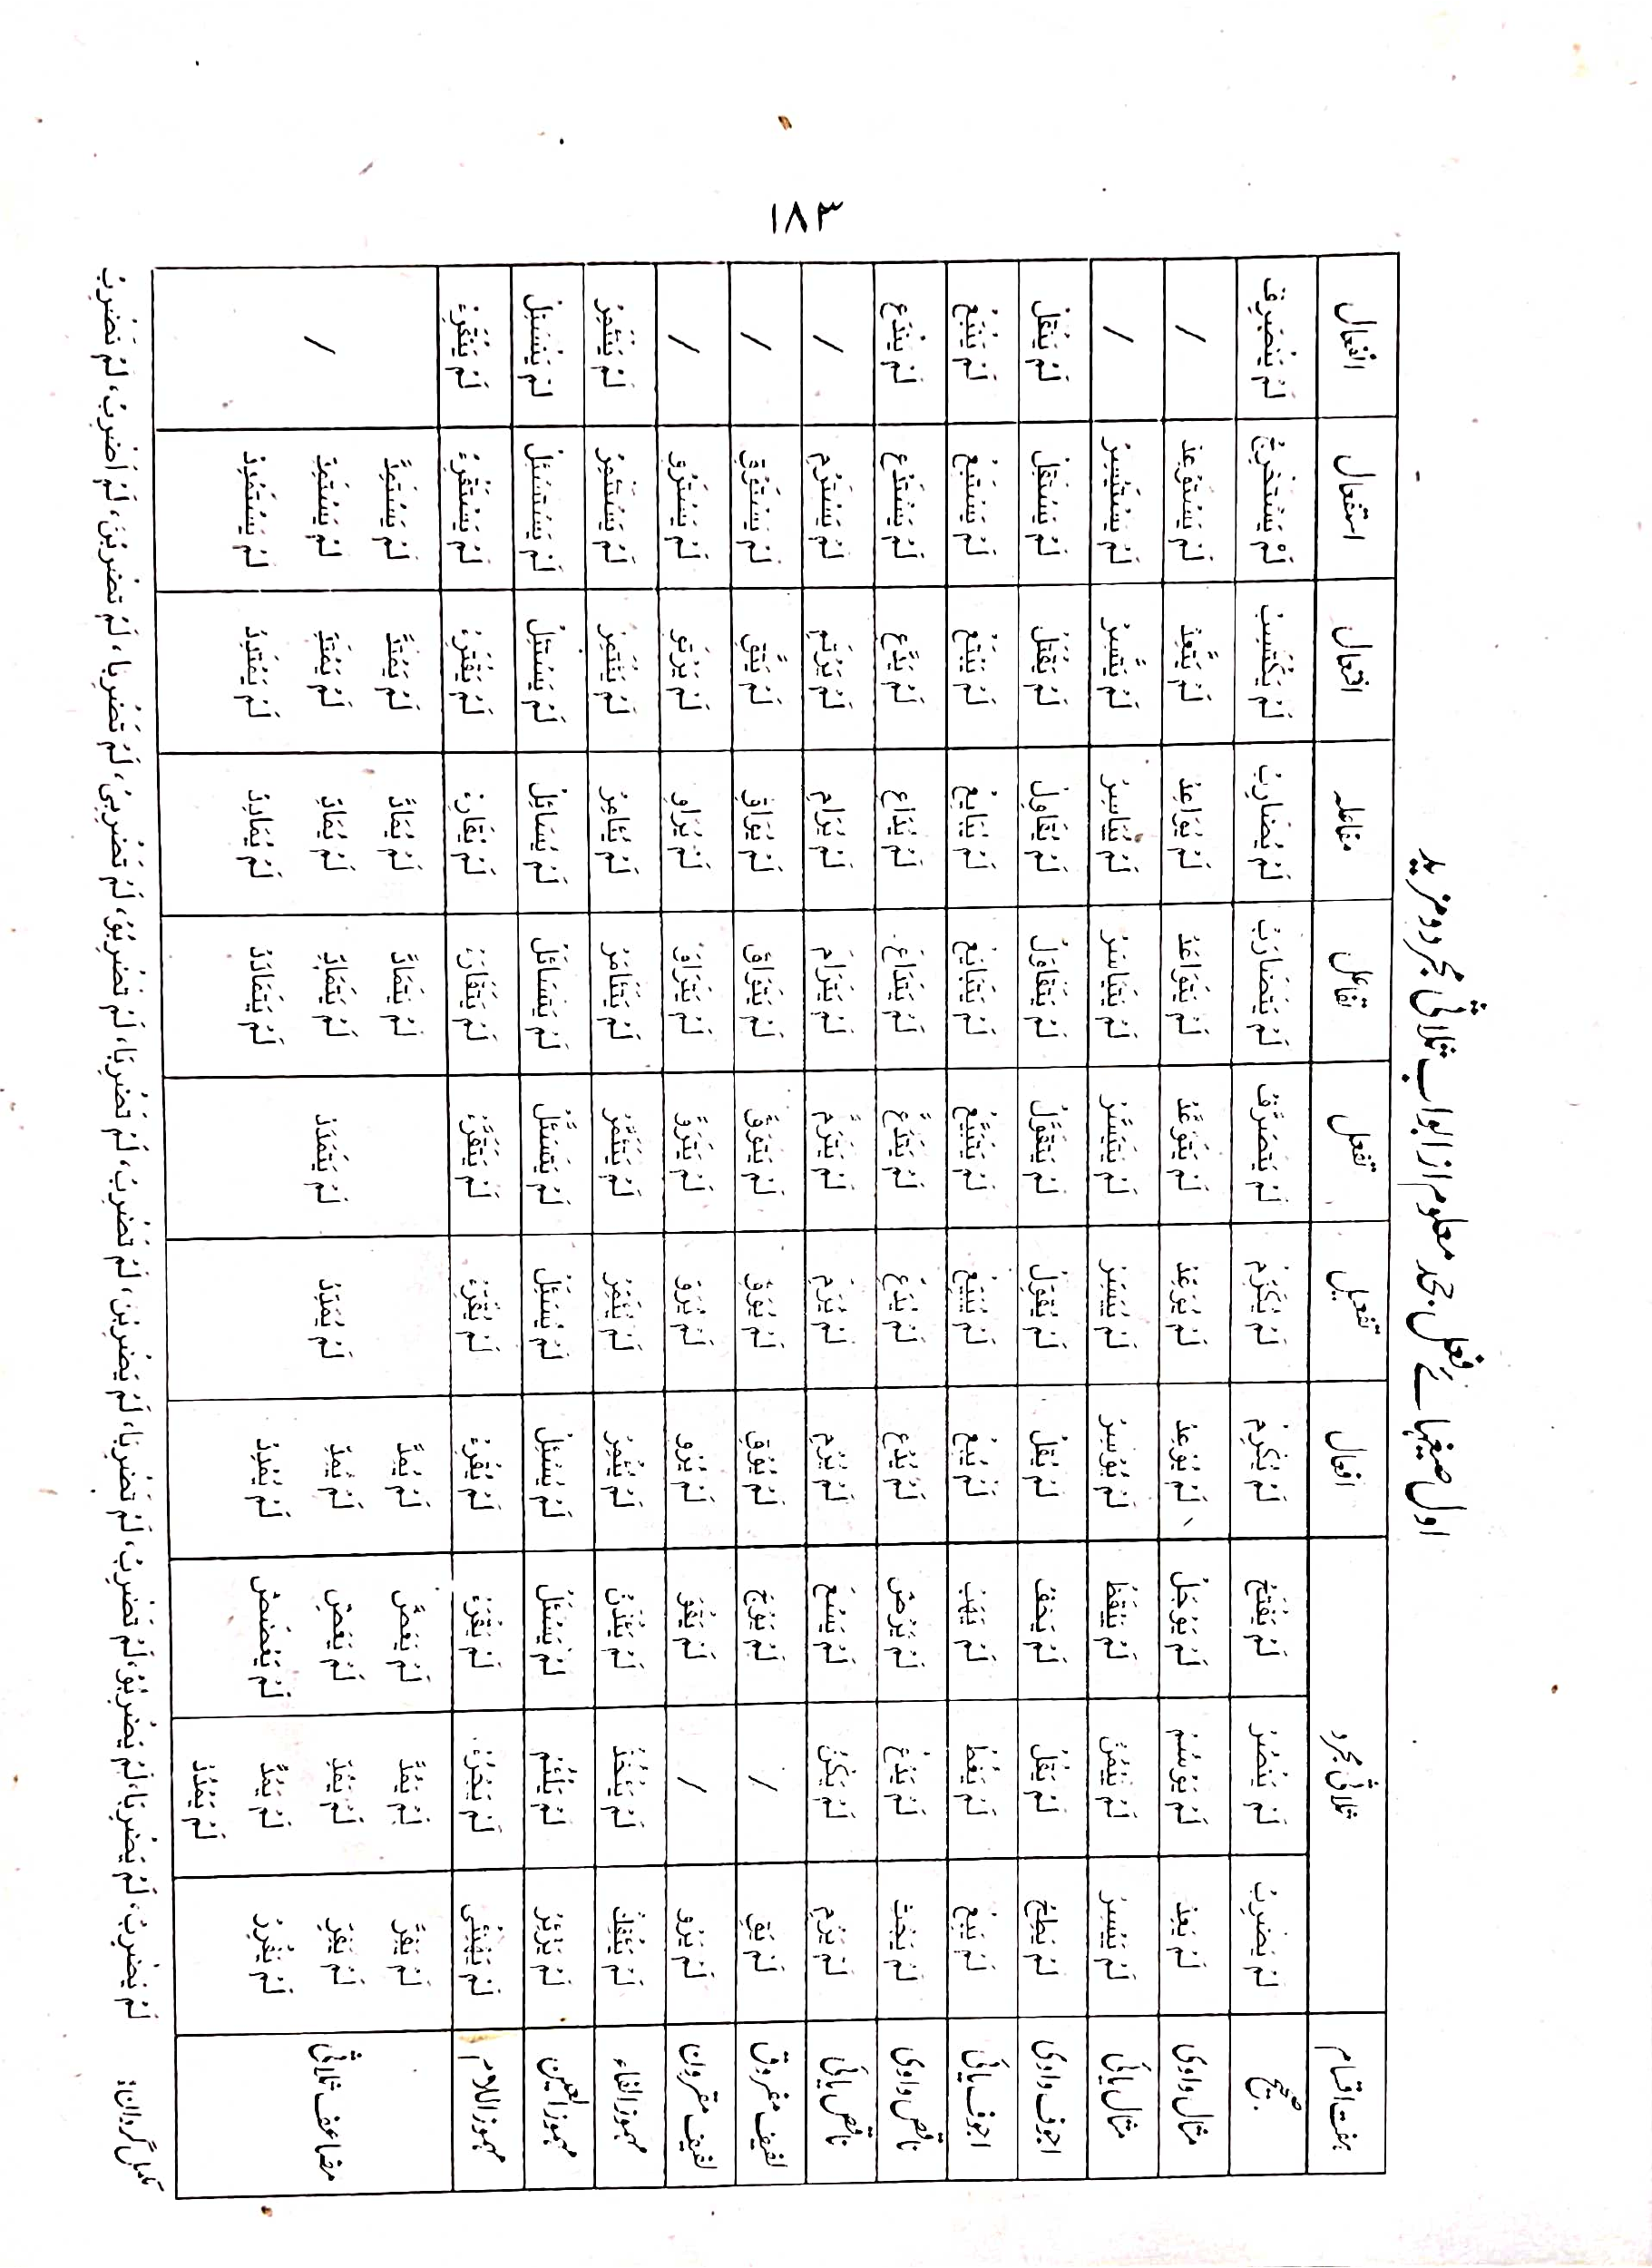 ۱۸۳
اول صیغہائے فعل جحد معلوم از ابواب ثلاثی مجرد و مزید
ہفت اقسام ثلاثی مجرد افعال تفعیل تفعل تفاعل مفاعلہ افتعال استفعال انفعال
صحیح لَمْ يَضْرِبْ لَمْ يَنْصُرْ لَمْ يَفْتَحْ لَمْ يُكْرِمْ لَمْ يُكَرِّمْ لَمْ يَتَصَرَّفْ لَمْ يَتَضَارَبْ لَمْ يُضَارِبْ لَمْ يَكْتَسِبْ لَمْ يَسْتَخْرِجْ لَمْ يَنْصَرِفْ
مثال واوی لَمْ يَعِدْ لَمْ يَوْسُمْ لَمْ يَوْجَلْ لَمْ يُوْعِدْ لَمْ يُوَعِّدْ لَمْ يَتَوَعَّدْ لَمْ يَتَوَاعَدْ لَمْ يُوَاعِدْ لَمْ يَتَّعِدْ لَمْ يَسْتَوْعِدْ /
مثال یائی لَمْ يَيْسِرْ لَمْ يَيْمُنْ لَمْ يَيْقَظْ لَمْ يُوْسِرْ لَمْ يُيَسِّرْ لَمْ يَتَيَسَّرْ لَمْ يَتَيَاسَرْ لَمْ يُيَاسِرْ لَمْ يَتَّسِرْ لَمْ يَسْتَيْسِرْ /
اجوف واوی لَمْ يَطِحْ لَمْ يَقُلْ لَمْ يَخَفْ لَمْ يُقِلْ لَمْ يُقَوِّلْ لَمْ يَتَقَوَّلْ لَمْ يَتَقَاوَلْ لَمْ يُقَاوِلْ لَمْ يَقْتَلْ لَمْ يَسْتَقِلْ لَمْ يَنْقَلْ
اجوف یائی لَمْ يَبِعْ لَمْ يَغُطْ لَمْ يَهَبْ لَمْ يُبِعْ لَمْ يُبَيِّعْ لَمْ يَتَبَيَّعْ لَمْ يَتَبَايَعْ لَمْ يُبَايِعْ لَمْ يَبْتَعْ لَمْ يَسْتَبِعْ لَمْ يَنْبَعْ
ناقص واوی لَمْ يَجْثِ لَمْ يَدْعُ لَمْ يَرْضَ لَمْ يُدْعِ لَمْ يُدَعِّ لَمْ يَتَدَعَّ لَمْ يَتَدَاعَ لَمْ يُدَاعِ لَمْ يَدَّعِ لَمْ يَسْتَدْعِ لَمْ يَنْدَعِ
ناقص یائی لَمْ يَرْمِ لَمْ يَكْنُ لَمْ يَسْعَ لَمْ يُرْمِ لَمْ يُرَمِّ لَمْ يَتَرَمَّ لَمْ يَتَرَامَ لَمْ يُرَامِ لَمْ يَرْتَمِ لَمْ يَسْتَرْمِ /
لفیف مفروق لَمْ يَقِ / لَمْ يَوْجَ لَمْ يُوْقِ لَمْ يُوَقِّ لَمْ يَتَوَقَّ لَمْ يَتَوَاقَ لَمْ يُوَاقِ لَمْ يَتَّقِ لَمْ يَسْتَوْقِ /
لفیف مقرون لَمْ يَرْوِ / لَمْ يَقْوَ لَمْ يُرْوِ لَمْ يُرَوِّ لَمْ يَتَرَوَّ لَمْ يَتَرَاوَ لَمْ يُرَاوِ لَمْ يَرْتَوِ لَمْ يَسْتَرْوِ /
مہموز الفاء لَمْ يَئْفِكْ لَمْ يَئْخُذْ لَمْ يَئْذَنْ لَمْ يُئْمِرْ لَمْ يُئَمِّرْ لَمْ يَتَئَمَّرْ لَمْ يَتَئَامَرْ لَمْ يُئَامِرْ لَمْ يَئْتَمِرْ لَمْ يَسْتَئْمِرْ لَمْ يَنْئَمِرْ
مہموز العین لَمْ يَزْئِرْ لَمْ يَلْئُمْ لَمْ يَسْئَلْ لَمْ يُسْئِلْ لَمْ يُسَئِّلْ لَمْ يَتَسَئَّلْ لَمْ يَتَسَائَلْ لَمْ يُسَائِلْ لَمْ يَسْتَئِلْ لَمْ يَسْتَسْئِلْ لَمْ يَنْسَئِلْ
مہموز اللام لَمْ يَهْنِئْ لَمْ يَجْرُءْ لَمْ يَقْرَءْ لَمْ يُقْرِءْ لَمْ يُقَرِّءْ لَمْ يَتَقَرَّءْ لَمْ يَتَقَارَءْ لَمْ يُقَارِءْ لَمْ يَقْتَرِءْ لَمْ يَسْتَقْرِءْ لَمْ يَنْقَرِءْ
مضاعف ثلاثی لَمْ يَفِرَّ لَمْ يَفِرِّ لَمْ يَفْرِرْ لَمْ يَمُدَّ لَمْ يَمُدِّ لَمْ يَمُدُّ لَمْ يَمْدُدْ لَمْ يَعَضَّ لَمْ يَعَضِّ لَمْ يَعْضَضْ لَمْ يُمِدَّ لَمْ يُمِدِّ لَمْ يُمْدِدْ لَمْ يُمَدِّدْ لَمْ يَتَمَدَّدْ لَمْ يَتَمَادَّ لَمْ يَتَمَادِّ لَمْ يَتَمَادَدْ لَمْ يُمَادَّ لَمْ يُمَادِّ لَمْ يُمَادِدْ لَمْ يَمْتَدَّ لَمْ يَمْتَدِّ لَمْ يَمْتَدِدْ لَمْ يَسْتَمِدَّ لَمْ يَسْتَمِدِّ لَمْ يَسْتَمْدِدْ /
مکمل گردان: لَمْ يَضْرِبْ، لَمْ يَضْرِبَا، لَمْ يَضْرِبُوْ، لَمْ تَضْرِبْ، لَمْ تَضْرِبَا، لَمْ يَضْرِبْنَ، لَمْ تَضْرِبْ، لَمْ تَضْرِبَا، لَمْ تَضْرِبُوْ، لَمْ تَضْرِبِیْ، لَمْ تَضْرِبَا، لَمْ تَضْرِبْنَ، لَمْ اَضْرِبْ، لَمْ نَضْرِبْ